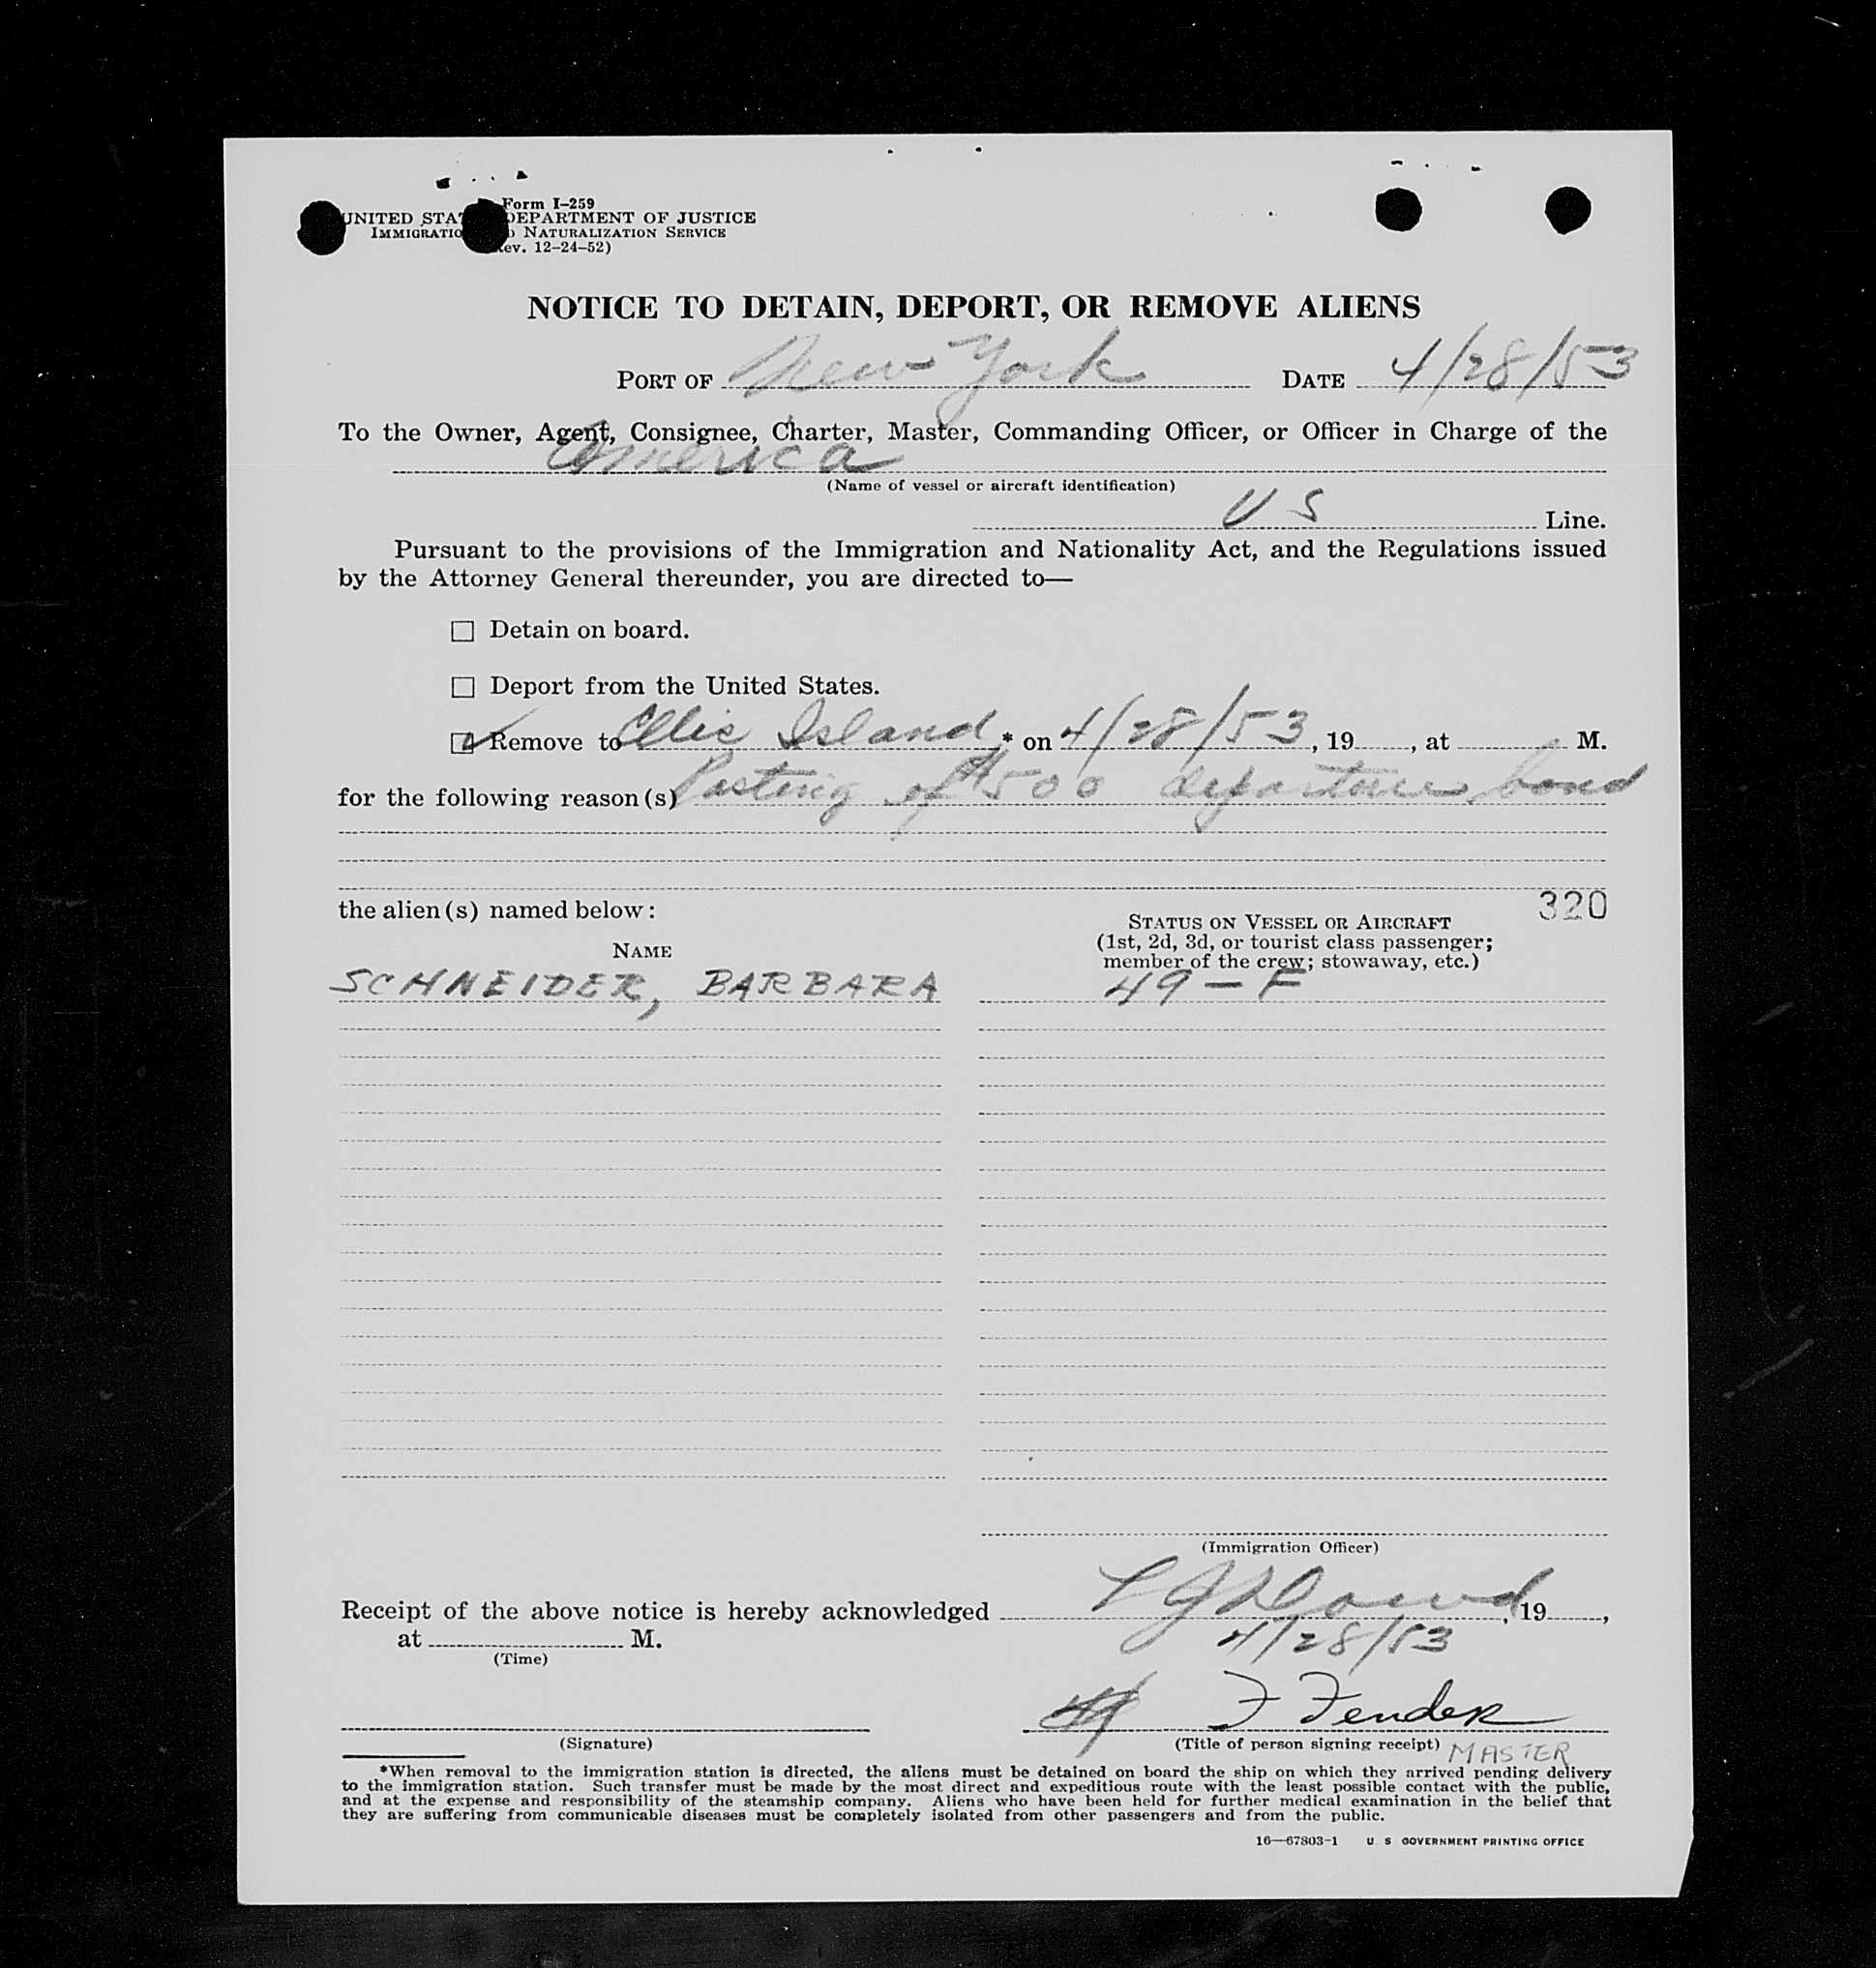 Form I–259
UNITED STA DEPARTMENT OF JUSTICE
IMMIGRATIO NATURALIZATION SERVICE
ev. 12–24–52)
NOTICE TO DETAIN, DEPORT, OR REMOVE ALIENS
PORT OF New York DATE 4/28/53
To the Owner, Agent, Consignee, Charter, Master, Commanding Officer, or Officer in Charge of the
America
(Name of vessel or aircraft identification)
US Line.
Pursuant to the provisions of the Immigration and Nationality Act, and the Regulations issued
by the Attorney General thereunder, you are directed to—
☐ Detain on board.
☐ Deport from the United States.
☑ Remove to Ellis Island * on 4/28/53, 19 , at M.
for the following reason(s) Posting of $500 departure bond
320
the alien(s) named below:
STATUS ON VESSEL OR AIRCRAFT
NAME (1st, 2d, 3d, or tourist class passenger;
member of the crew; stowaway, etc.)
SCHNEIDER, BARBARA 49 – F
(Immigration Officer)
Receipt of the above notice is hereby acknowledged L J Dowd, 19 ,
at M. 4/28/53
(Time)
F Fender
(Signature) (Title of person signing receipt) MASTER
*When removal to the immigration station is directed, the aliens must be detained on board the ship on which they arrived pending delivery
to the immigration station. Such transfer must be made by the most direct and expeditious route with the least possible contact with the public,
and at the expense and responsibility of the steamship company. Aliens who have been held for further medical examination in the belief that
they are suffering from communicable diseases must be completely isolated from other passengers and from the public.
16—67803-1 U S GOVERNMENT PRINTING OFFICE